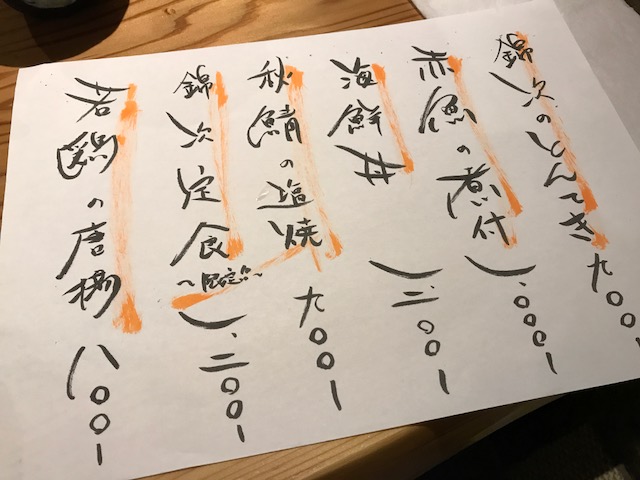 錦次のとんてき 九〇〇-
赤魚の煮付 一、〇〇〇-
海鮮丼 一、二〇〇-
秋鯖の塩焼 九〇〇-
錦次定食 〜限定〜 一、二〇〇-
若鶏の唐揚 八〇〇-